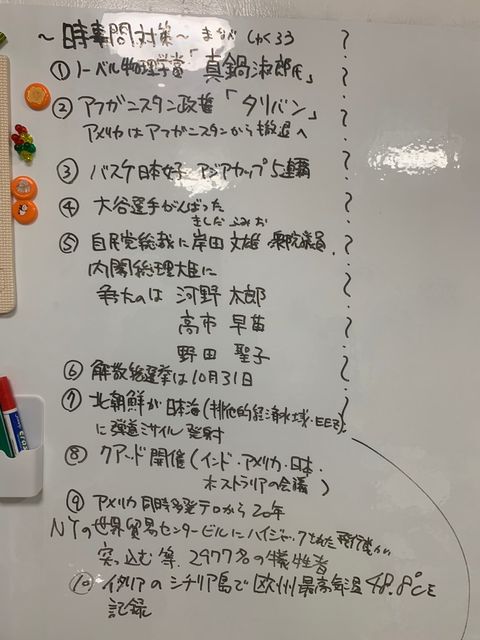 ～時事問対策～ まなべ しゅくろう
① ノーベル物理学賞「真鍋淑郎氏」
② アフガニスタン政権「タリバン」
アメリカはアフガニスタンから撤退へ
③ バスケ日本女子 アジアカップ5連覇
④ 大谷選手がんばった
きしだ ふみお
⑤ 自民党総裁に岸田文雄 衆院議員、
内閣総理大臣に
争たのは 河野 太郎
高市 早苗
野田 聖子
⑥ 解散総選挙は10月31日
⑦ 北朝鮮が日本海(排他的経済水域・EEZ)
に弾道ミサイル発射
⑧ クアード開催(インド・アメリカ・日本・
オストラリアの会議)
⑨ アメリカ同時多発テロから20年
NYの世界貿易センタービルにハイジャックされた飛行機が
突っ込む等、2977名の犠牲者
⑩ イタリアのシチリア島で欧州最高気温48.8℃を
記録